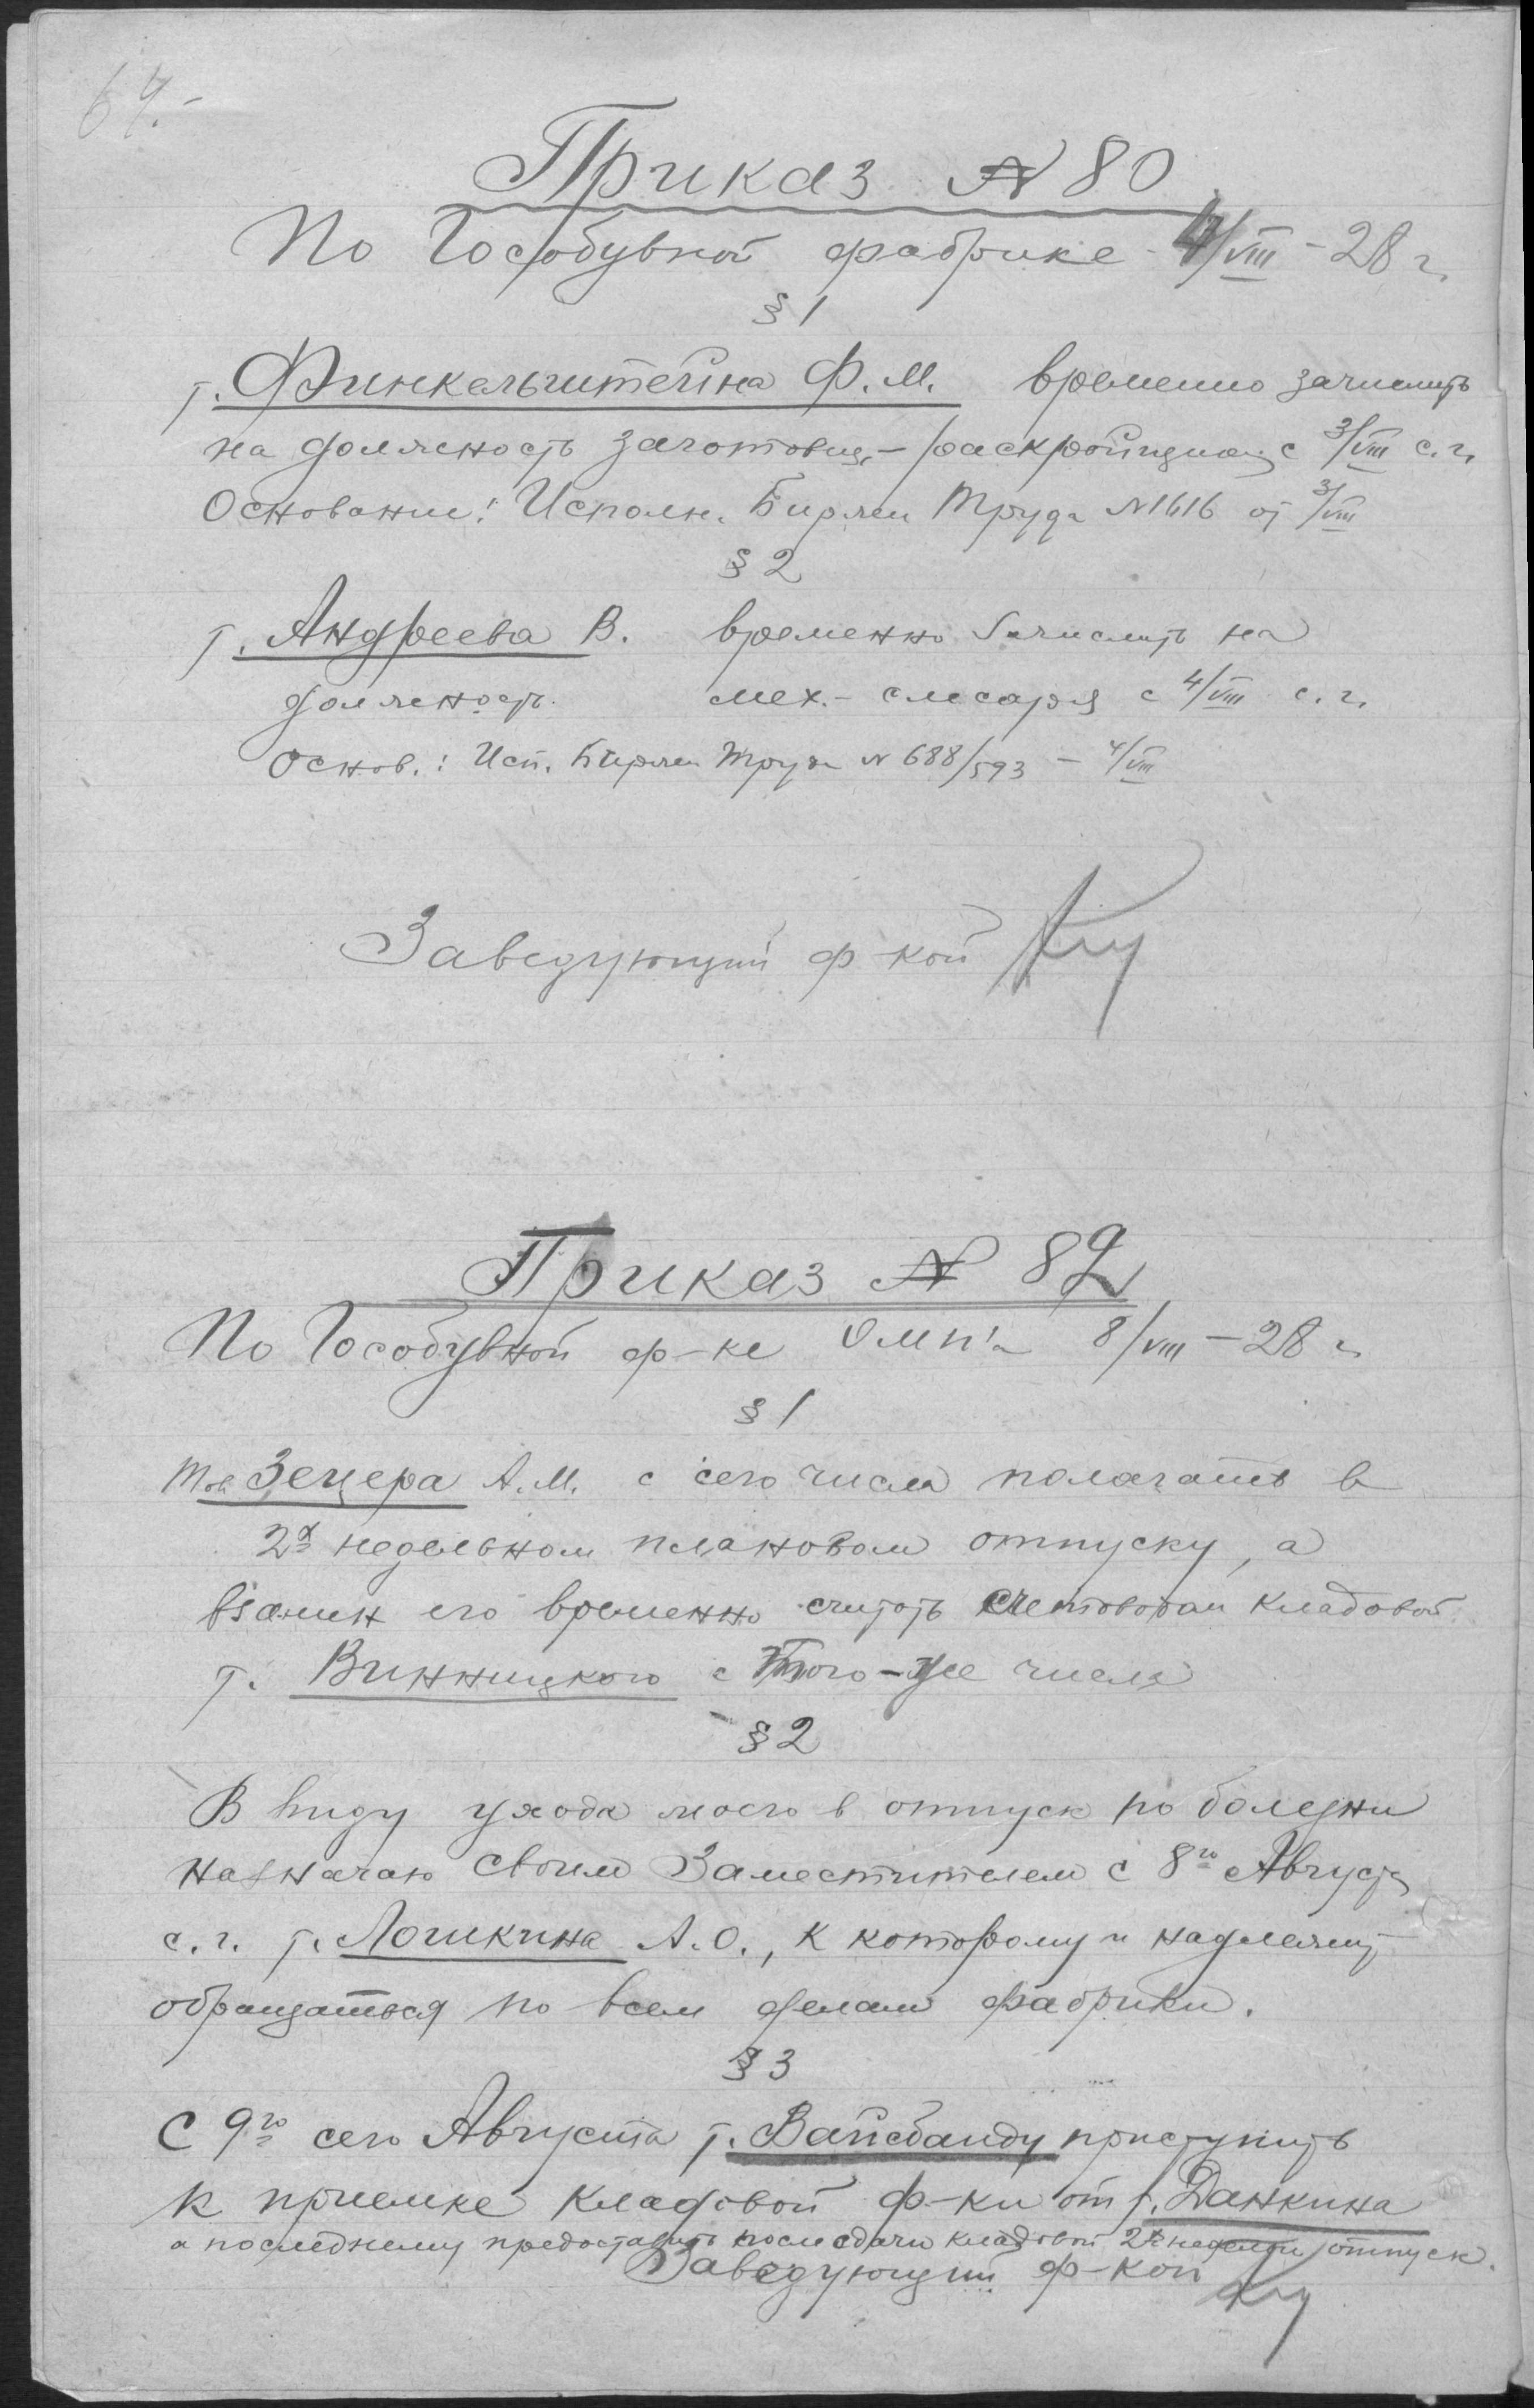 64.-
Приказ № 80
По Гособувной фабрике 4/VIII - 28 г.
§ 1
т. Финкельштейна Ф. М. временно зачислить
на должность заготовщ.-раскройщика с 3/VIII с. г.
Основание: Исполн. Биржи Труда №1616 от 3/VIII
§ 2
т. Андреева В. временно зачислить на
должность мех.- слесаря с 4/VIII с. г.
Основ.: Исп. Биржи Труда № 688/593 - 4/VIII
Заведующий ф-кой
Приказ № 82
По Гособувной ф-ке 8/VIII - 28 г.
§ 1
Тов. Зецера А. М. с сего числа полагать в
2х недельном плановом отпуску, а
взамен его временно считать счетовода кладовой
т. Винницкого с того-же числа
§ 2
В виду ухода моего в отпуск по болезни
назначаю своим Заместителем с 8го Августа
с. г. т. Лошкина А. О., к которому и надлежит
обращаться по всем делам фабрики.
§ 3
С 9го сего Августа т. Вайсбанду приступить
к приемке кладовой ф-ки от т. Данкина
а последнему предоставить после сдачи кладовой 2х недельн отпуск.
Заведующий ф-кой